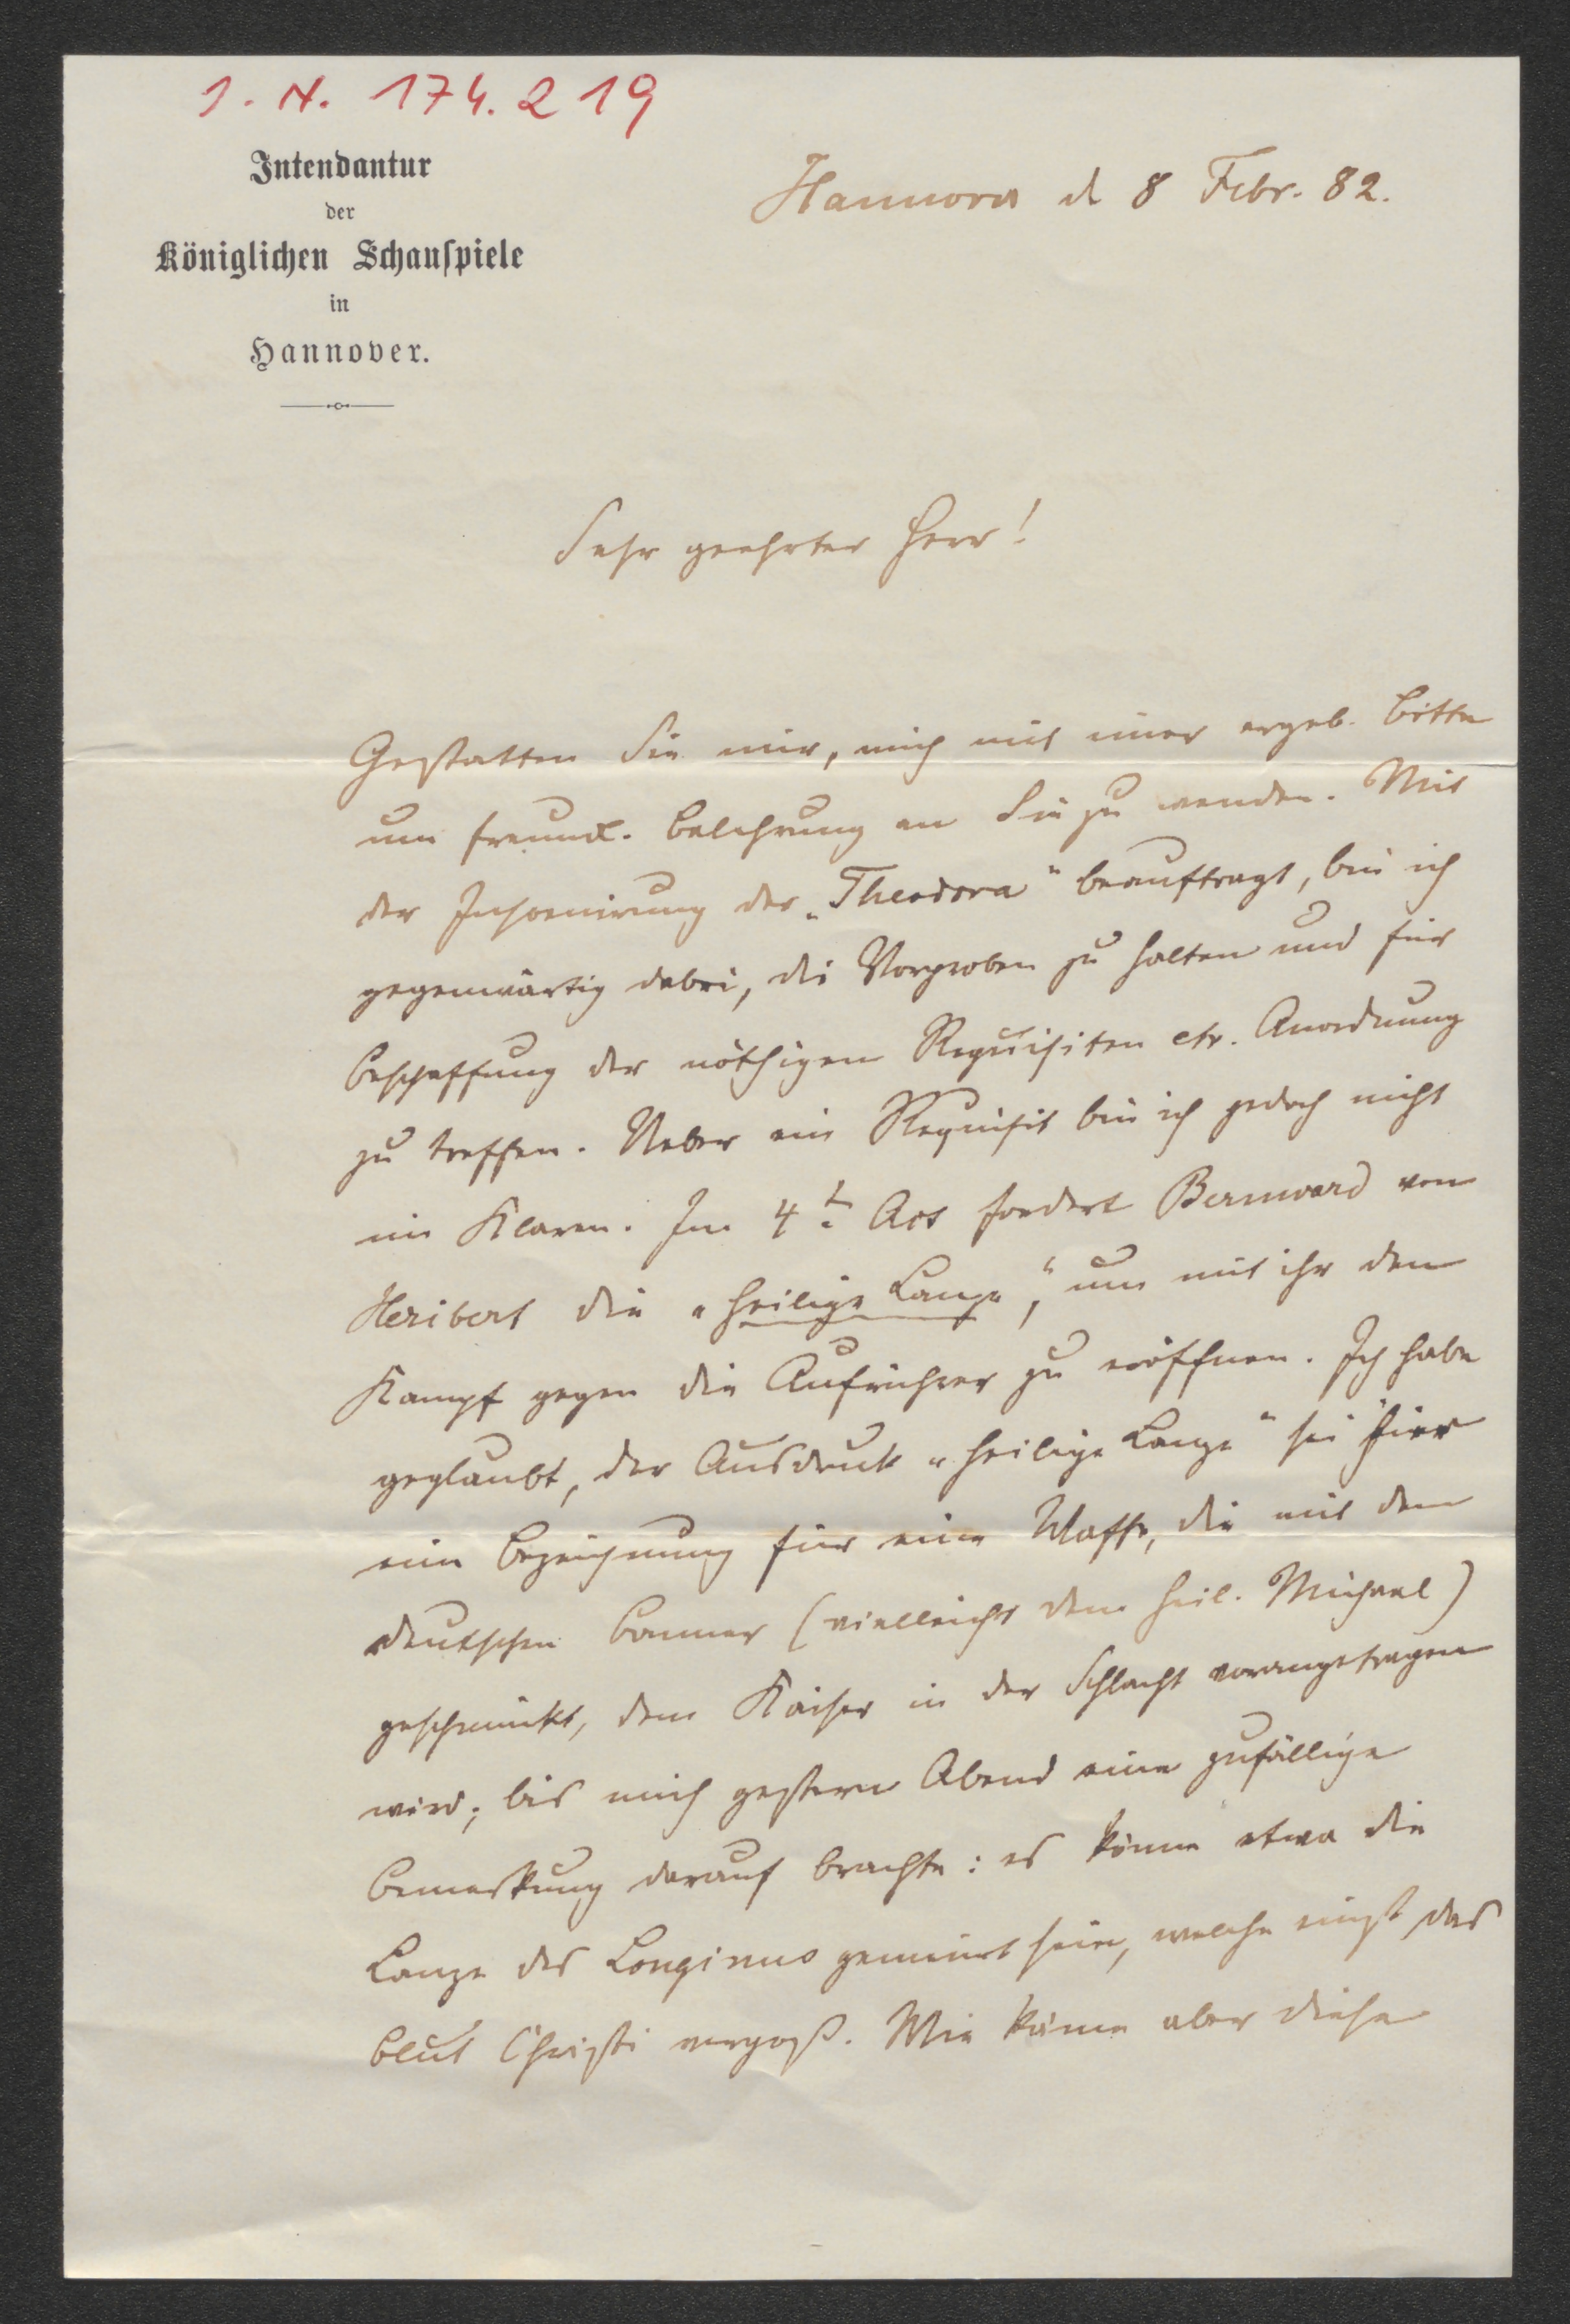 I. N. 174.219
Intendantur
der
Königlichen Schauspiele
in
Hannover.
Hannover d 8 Febr. 82.
Sehr geehrter Herr!
Gestatten Sie mir, mich mit einer ergeb. Bitte
um freundl. Belehrung an Sie zu wenden. Mit
der Inscenirung der „Theodora" beauftragt, bin ich
gegenwärtig dabei, die Vorproben zu halten und für
Beschaffung der nöthigen Requisiten etc. Anordnung
zu treffen. Ueber ein Requisit bin ich jedoch nicht
im Klaren. Im 4t Act fordert Bernward von
Heribert die „heilige Lanze", um mit ihr den
Kampf gegen die Aufrührer zu eröffnen. Ich habe
geglaubt, der Ausdruck „heilige Lanze" sei hier
eine Bezeichnung für eine Waffe, die mit dem
deutschen Banner (vielleicht dem heil. Michael)
geschmückt, dem Kaiser in der Schlacht vorangetragen
wird; bis mich gestern Abend eine zufällige
Bemerkung darauf brachte: es könne etwa die
Lanze des Longinus gemeint sein, welche einst das
Blut Christi vergoß. Wie käme aber diese